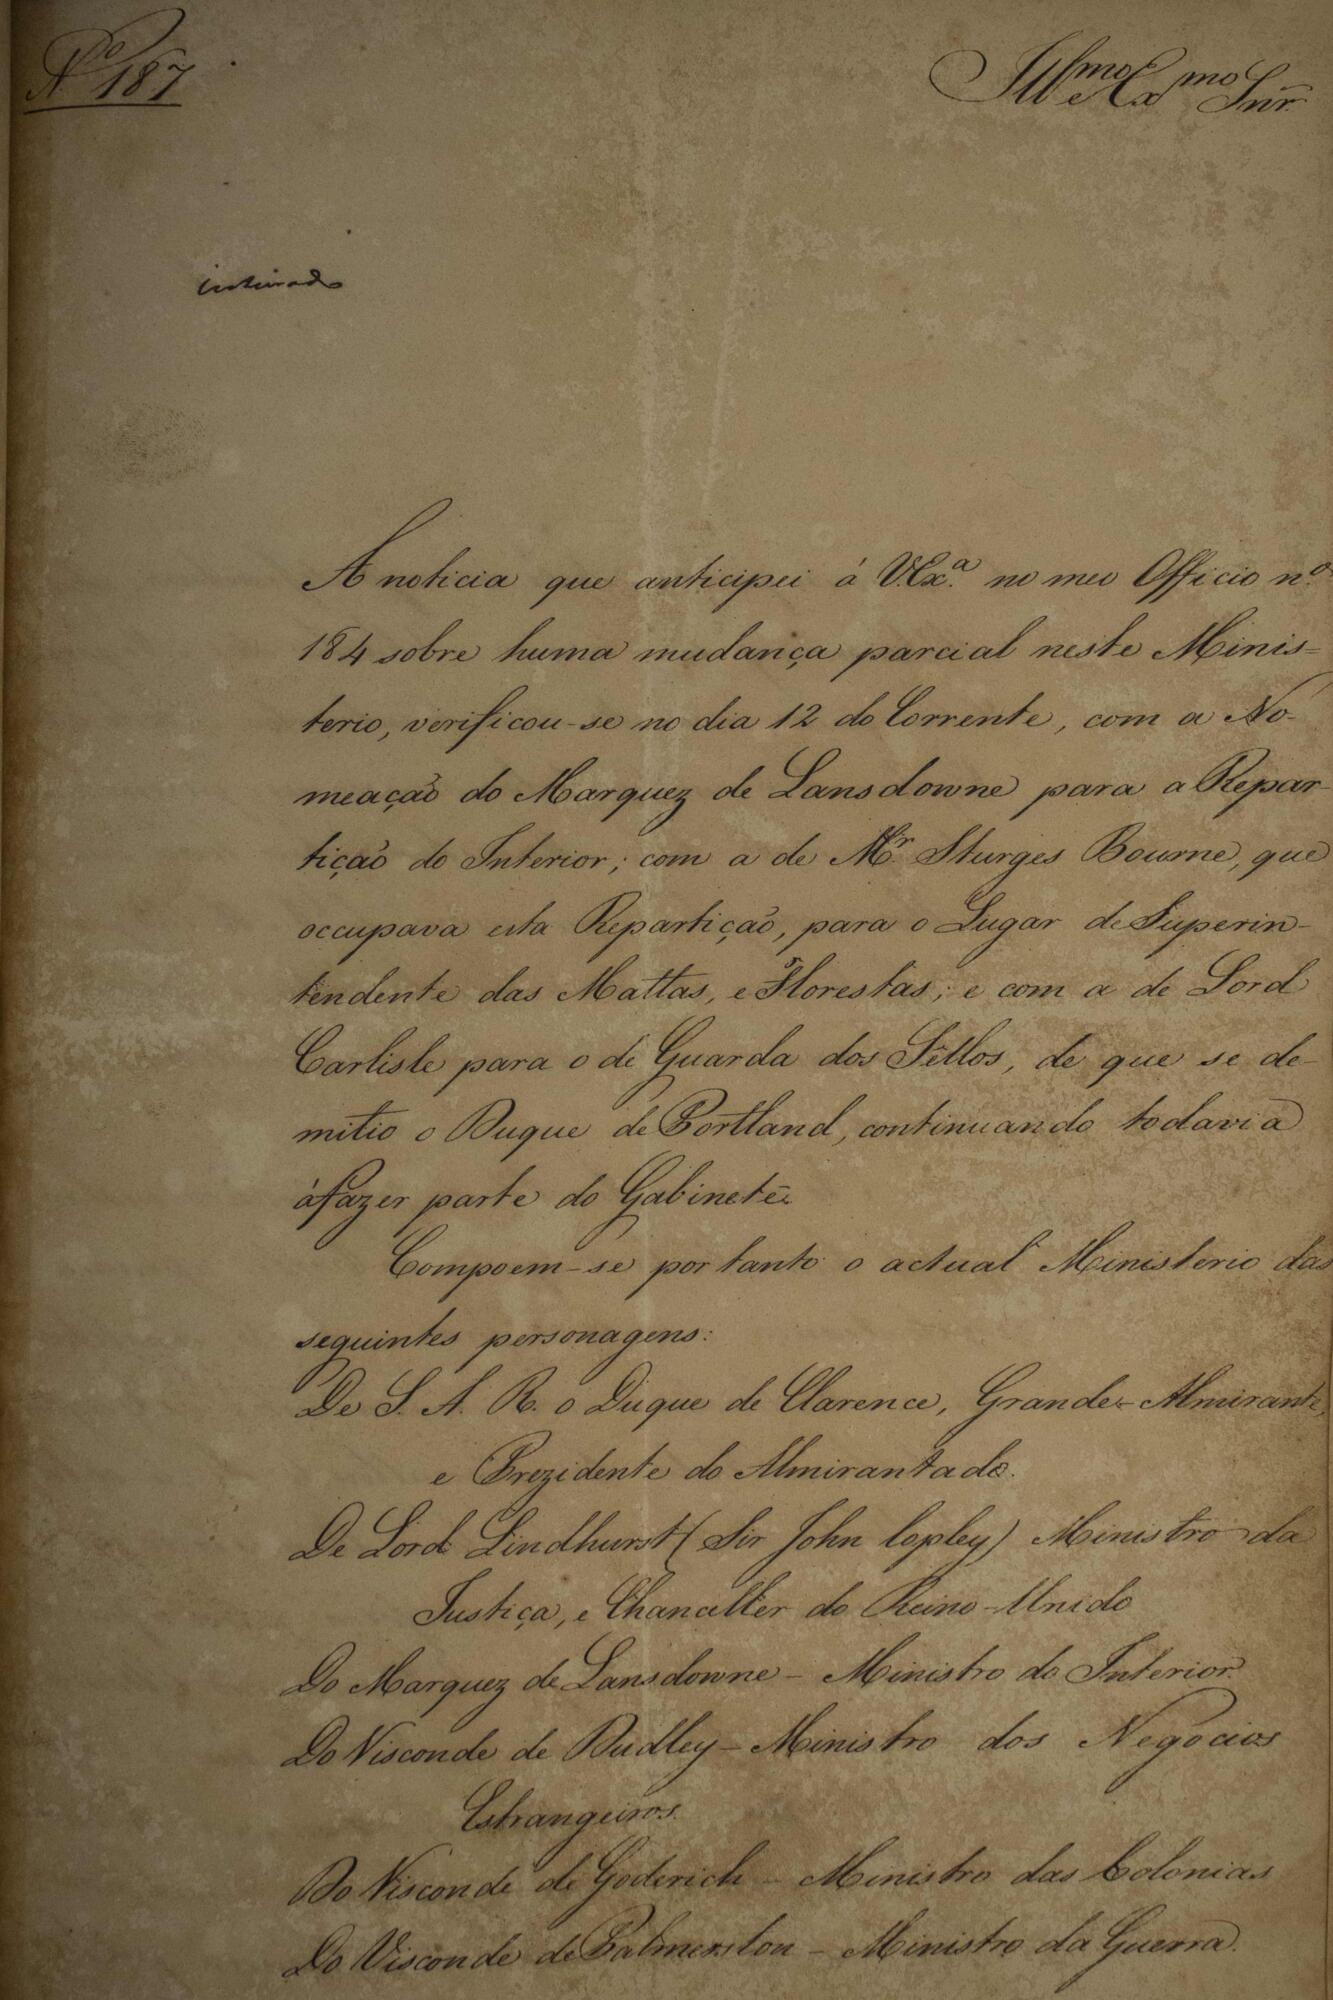 Nº 187
Illmo e Exmo Snr.
inteirado
A noticia que anticipei á V.Exª. no meu Officio nº
184 sobre huma mudança parcial neste Minis=
terio, verificou-se no dia 12 do Corrente, com a No-
meação do Marquez de Lansdowne para a Repar-
tição do Interior; com a de Mr. Sturges Bourne, que
occupava esta Repartição, para o Lugar de Superin-
tendente das Mattas, e Florestas; e com a de Lord
Carlisle para o de Guarda dos Sêllos, de que se de-
mitio o Duque de Portland, continuando todavia
á fazer parte do Gabinete.
Compoem-se por tanto o actual Ministerio das
seguintes personagens:
De S. A. R. o Duque de Clarence, Grande-Almirante,
e Prezidente do Almirantado.
De Lord Lindhurst (Sir John Copley) Ministro da
Justiça, e Chanceller do Reino-Unido
Do Marquez de Lansdowne - Ministro do Interior.
Do Visconde de Dudley - Ministro dos Negocios
Estrangeiros.
Do Visconde de Goderich - Ministro das Colonias
Do Visconde de Palmerston - Ministro da Guerra.